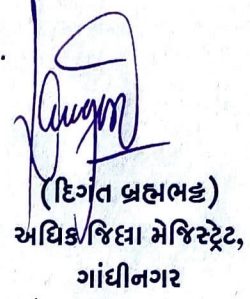 (દિગંત બ્રહ્મભટ્ટ)
અધિક જિલ્લા મેજિસ્ટ્રેટ,
ગાંધીનગર